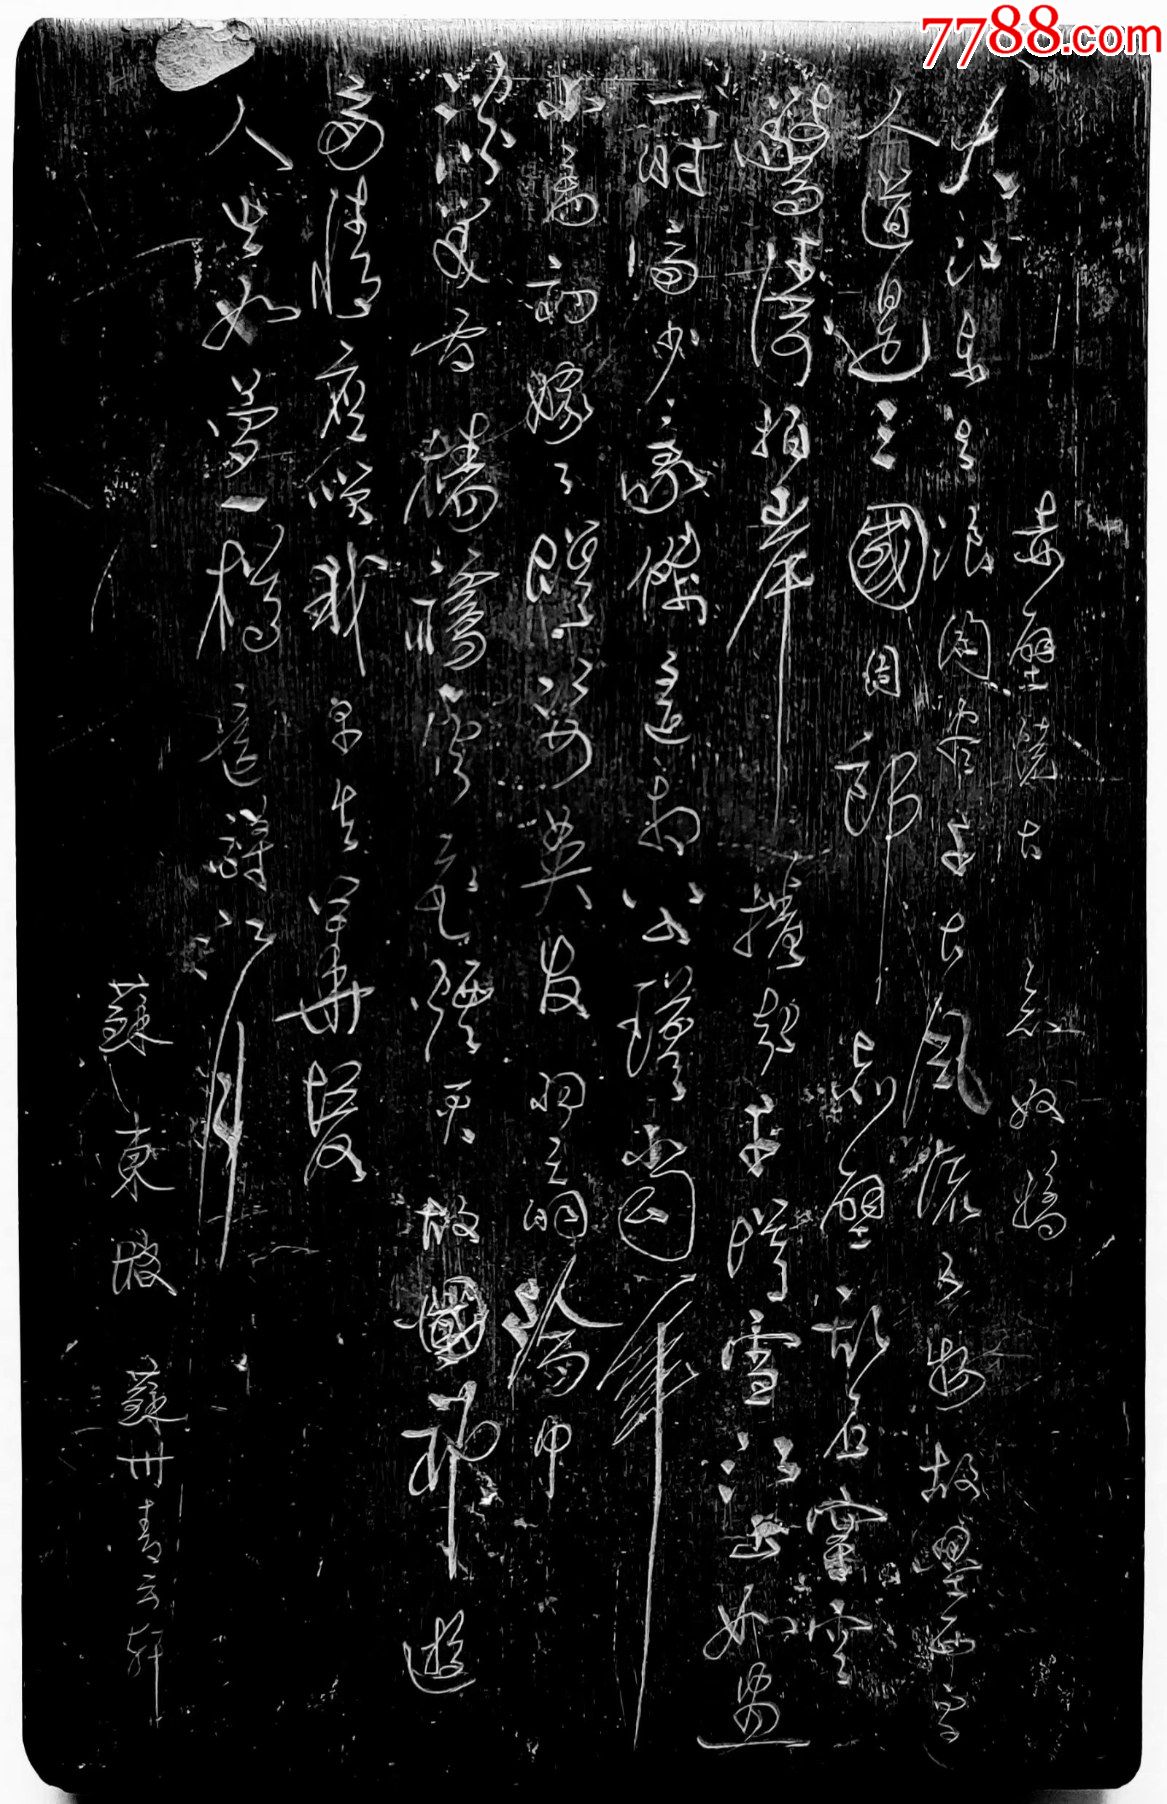 赤壁懷古 念奴嬌
大江東去浪淘盡千古風流人物故壘西邊
人道是三國周郎 赤壁亂石穿雲
驚濤拍岸 捲起千堆雪江山如畫
一時多少豪傑遙想公瑾當年
小喬初嫁了雄姿英發羽扇綸巾
談笑間檣櫓灰飛煙滅故國神遊
多情應笑我早生華髮
人生如夢一樽還酹江月
蘇東坡 蘇州青雲軒
7788.com